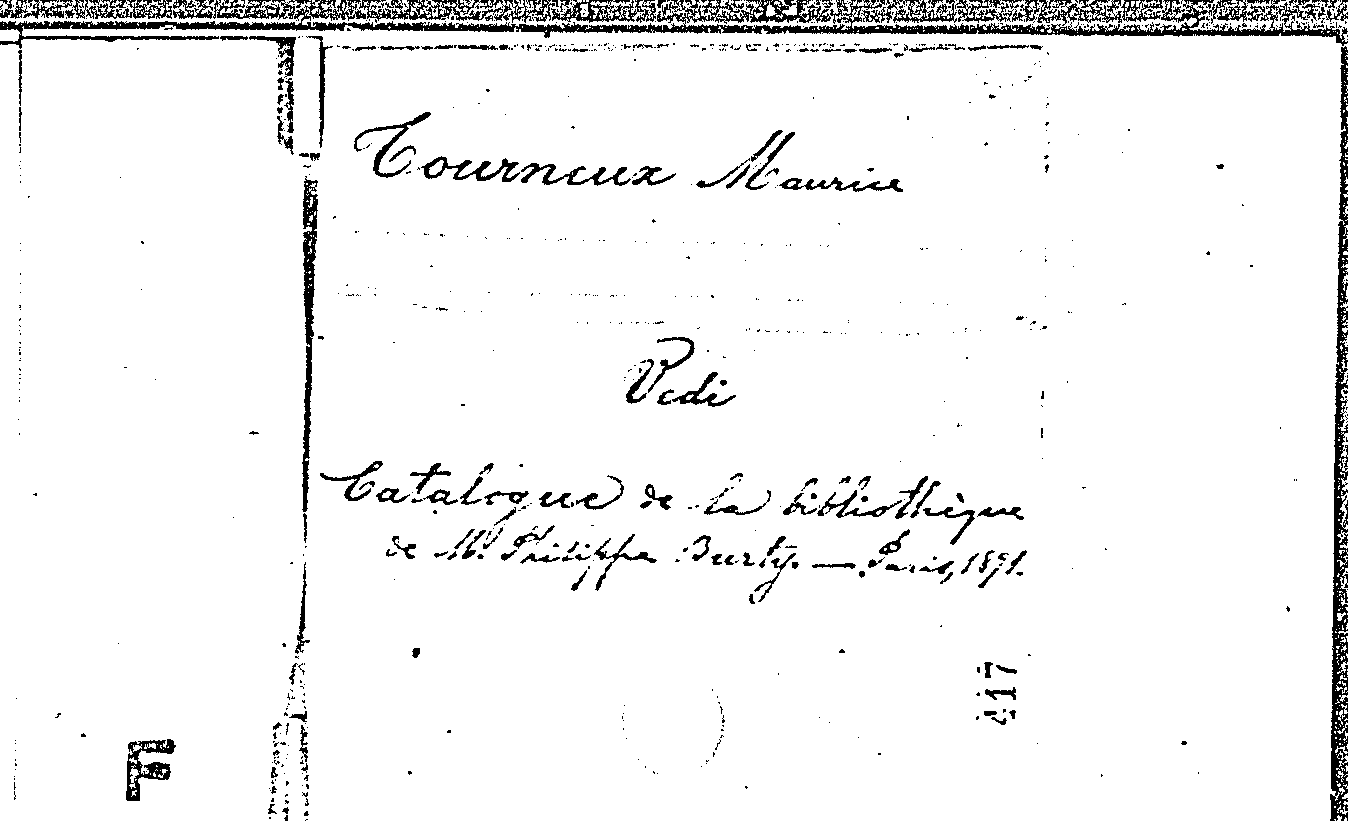 Tourneux Maurice
Vedi
Catalogue de la bibliothèque
de M. Philippe Burty. — Paris, 1891.
417
F